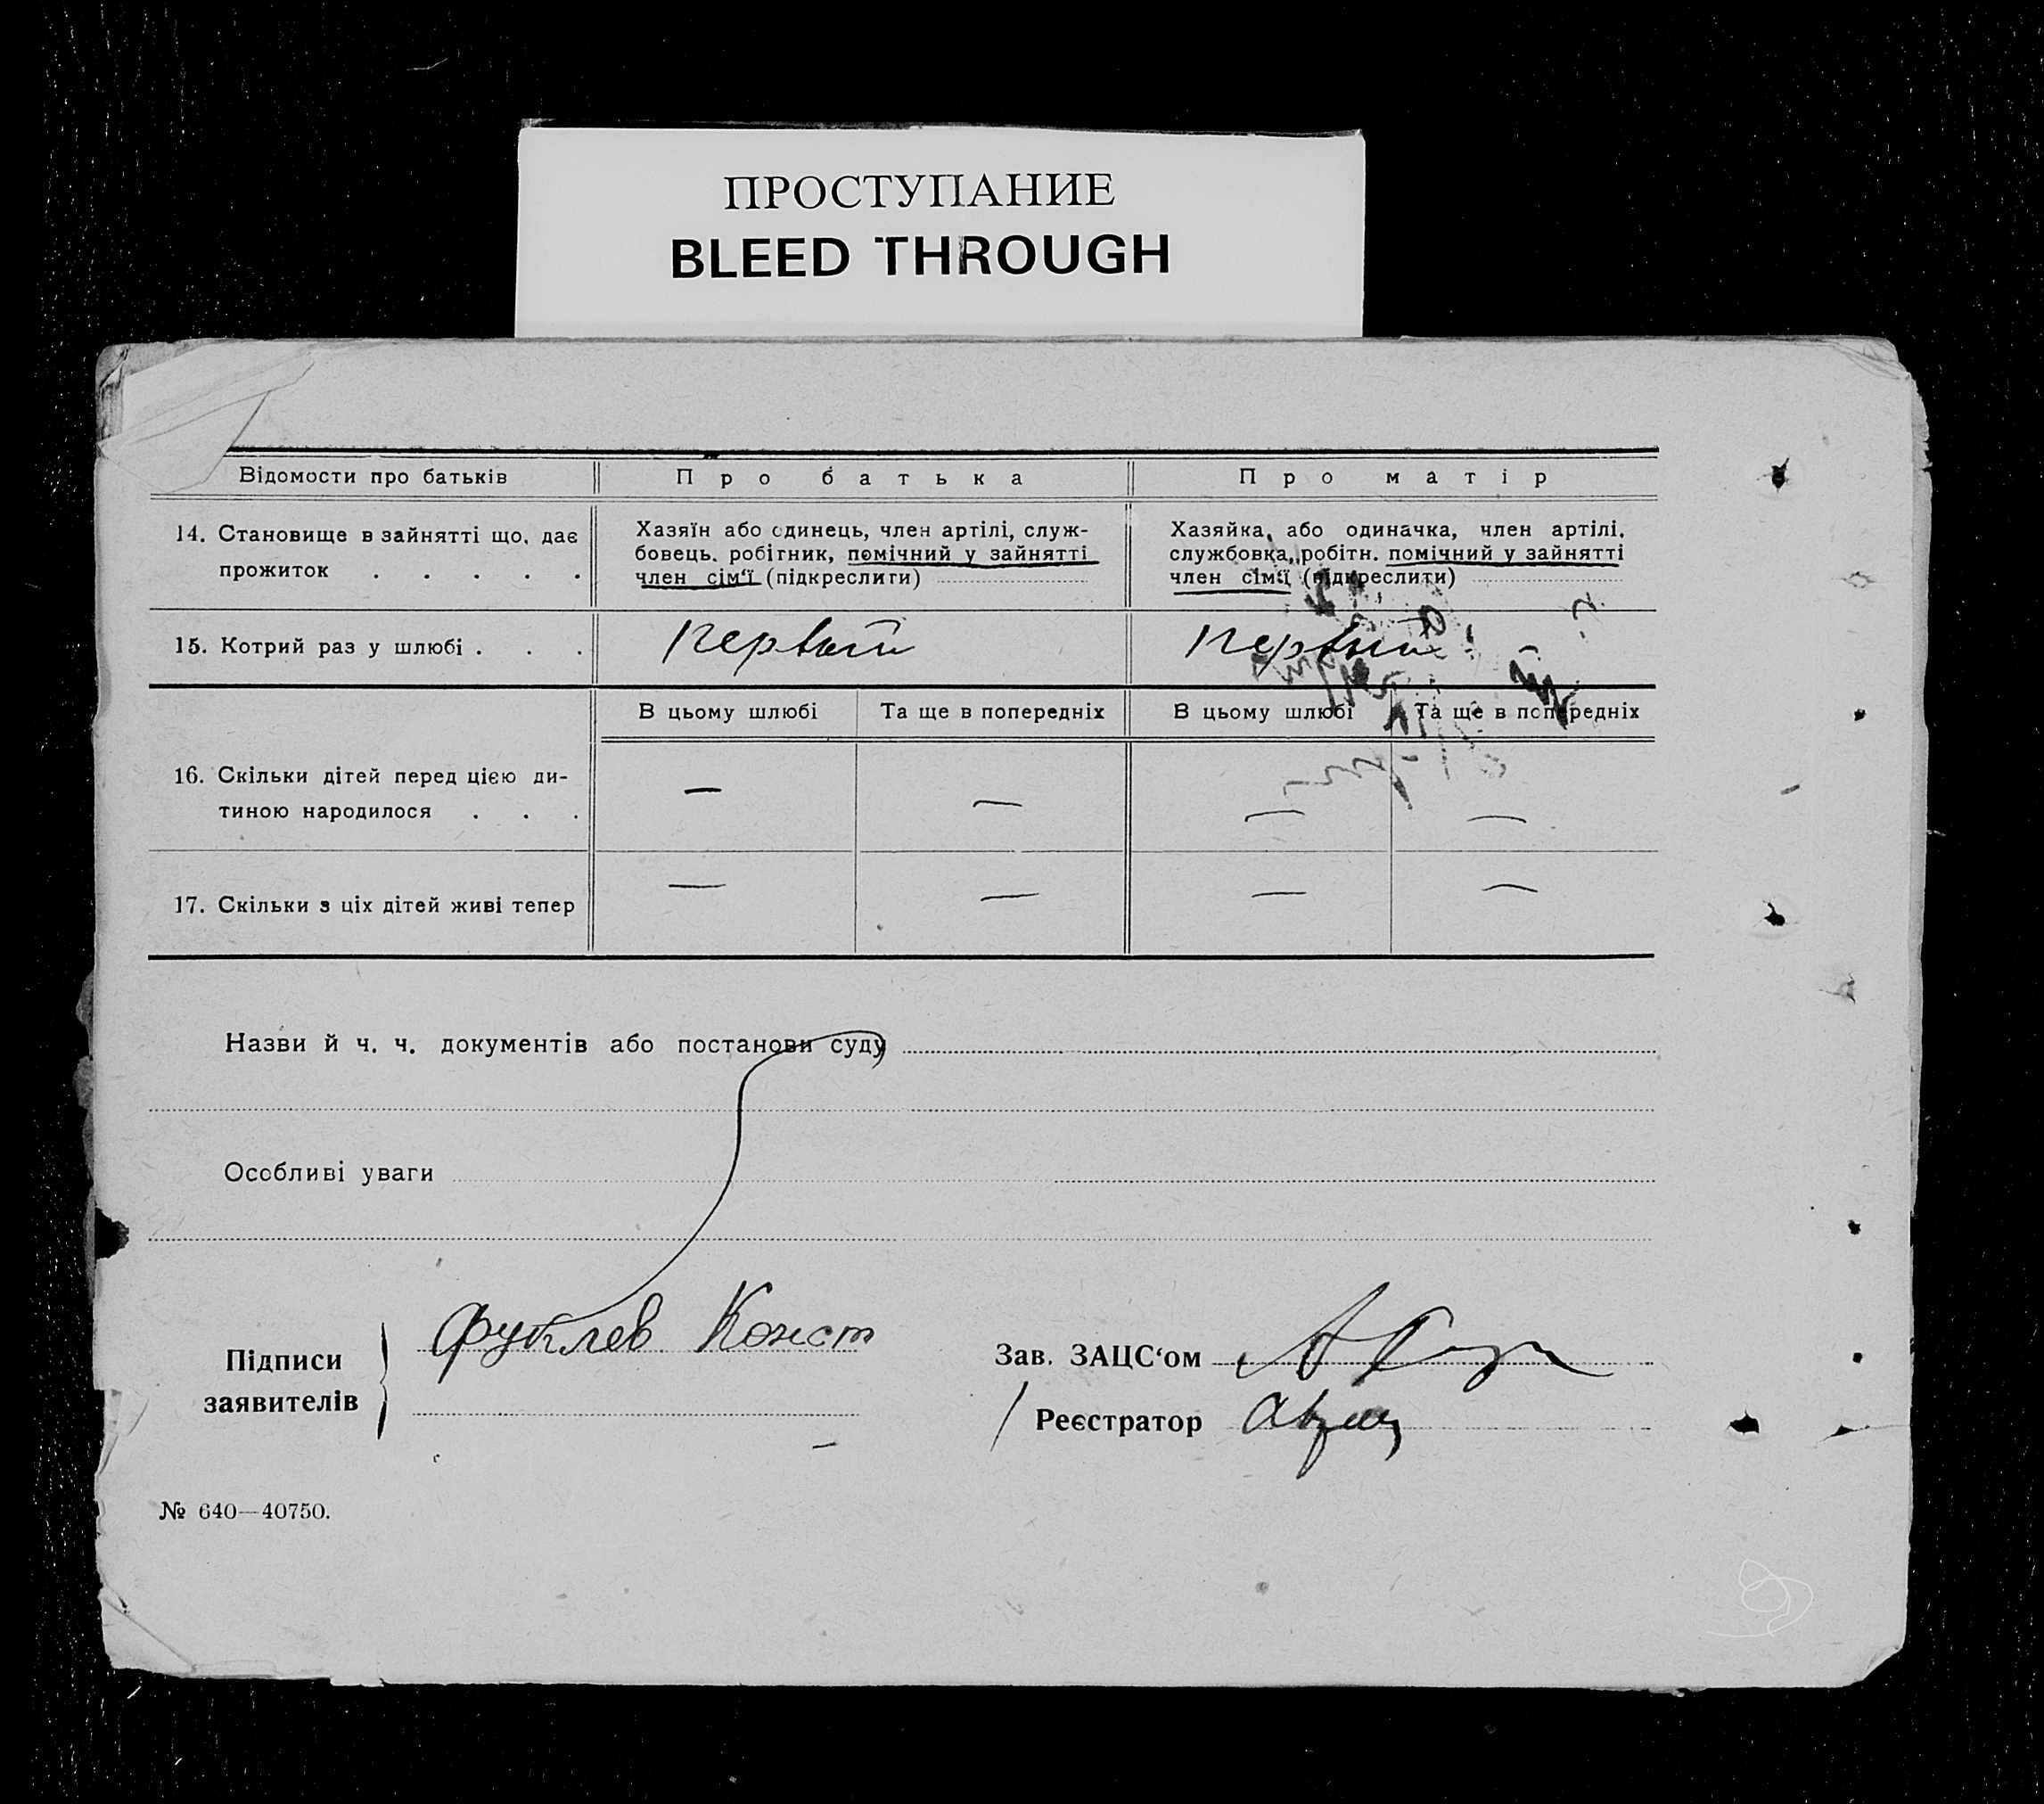 ПРОСТУПАНИЕ
BLEED THROUGH
Відомости про батьків
Про батька
Про матір
14. Становище в зайнятті що, дає
прожиток . . . . .
Хазяїн або одинець, член артілі, служ-
бовець. робітник, помічний у зайнятті
член сім'ї (підкреслити)
Хазяйка, або одиначка, член артілі,
службовка, робітн. помічний у зайнятті
член сім'ї (підкреслити)
15. Котрий раз у шлюбі . . .
первый
первый
В цьому шлюбі
Та ще в попередніх
В цьому шлюбі
Та ще в попередніх
16. Скільки дітей перед цією ди-
тиною народилося . . .
—
—
—
—
17. Скільки з ціх дітей живі тепер
—
—
—
—
Назви й ч. ч. документів або постанови суду
Особливі уваги
Підписи
заявителів
Конст
Зав. ЗАЦС'ом
Реєстратор
№ 640—40750.